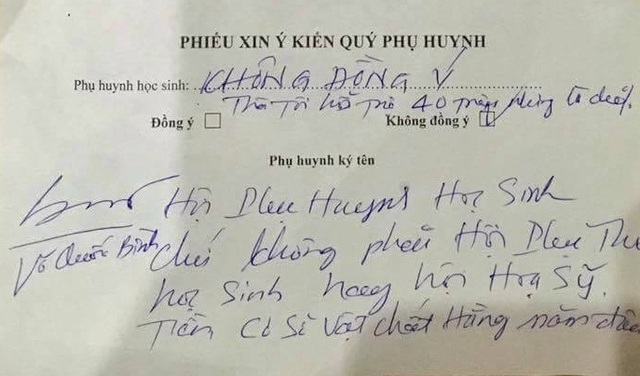 PHIẾU XIN Ý KIẾN QUÝ PHỤ HUYNH
Phụ huynh học sinh: KHÔNG ĐỒNG Ý
40
Đồng ý Không đồng ý
Phụ huynh ký tên
Hội Phụ Huynh Học Sinh
Võ Quốc Bình
chứ không phải Hội Phụ Thu
học Sinh hay hội Hoạ Sỹ.
Tiền Cơ Sở Vật chất Hằng năm đâu